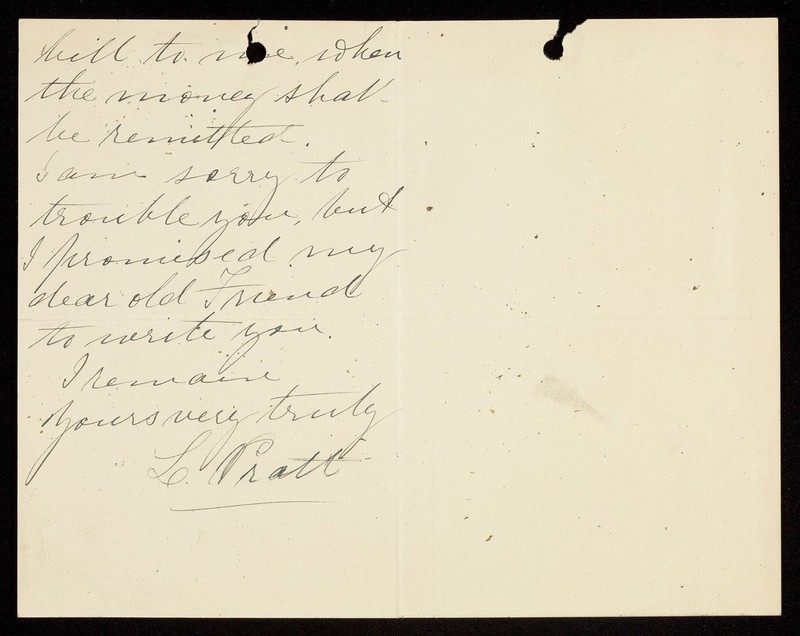 bill to me, when
the money shall
be remitted.
I am sorry to
trouble you, but
I promised my
dear old Friend
to write you.
I remain
Yours very truly
L. Pratt